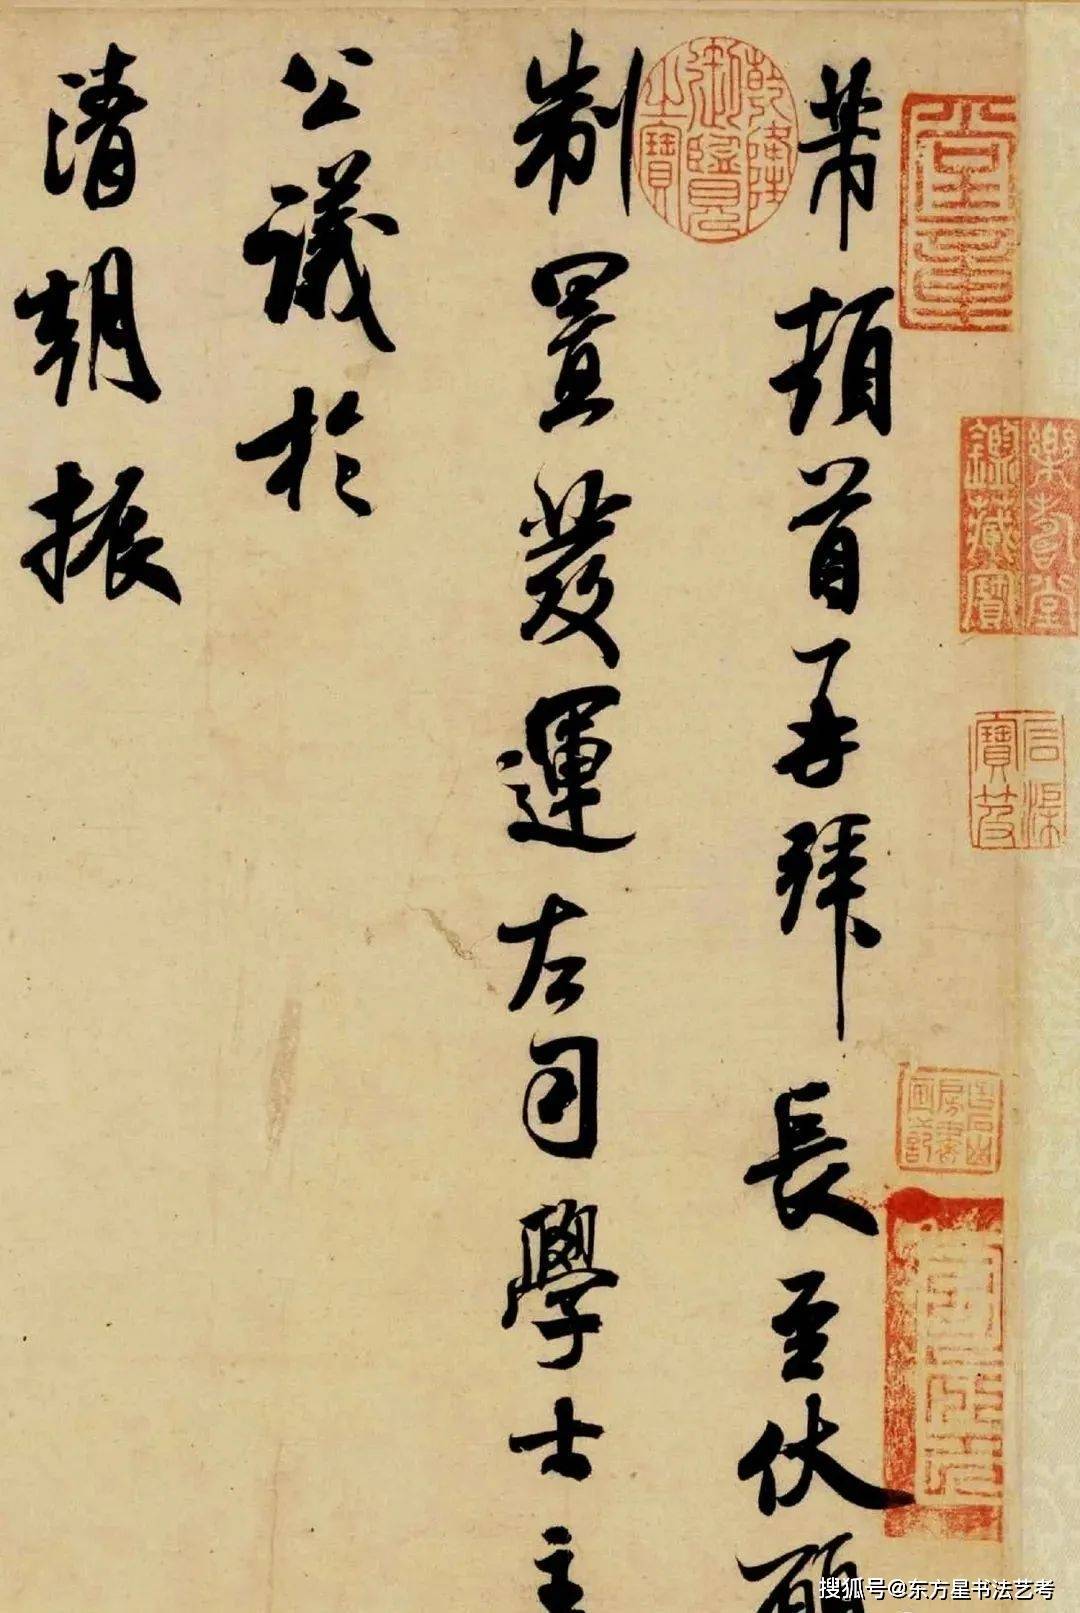 芾頓首再拜長至伏願
制置發運左司學士主
公議於
清朝振
乾隆御覽之寶
樂善堂鑑藏寶
石渠寶笈
搜狐号@东方星书法艺考